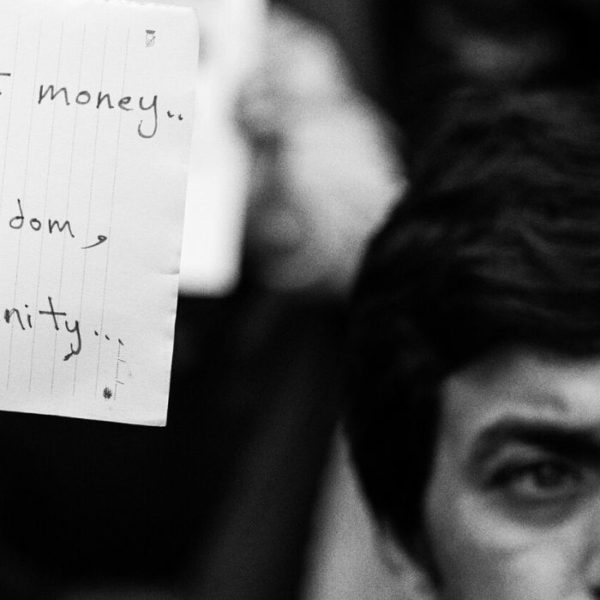 money..
dom,
nity...